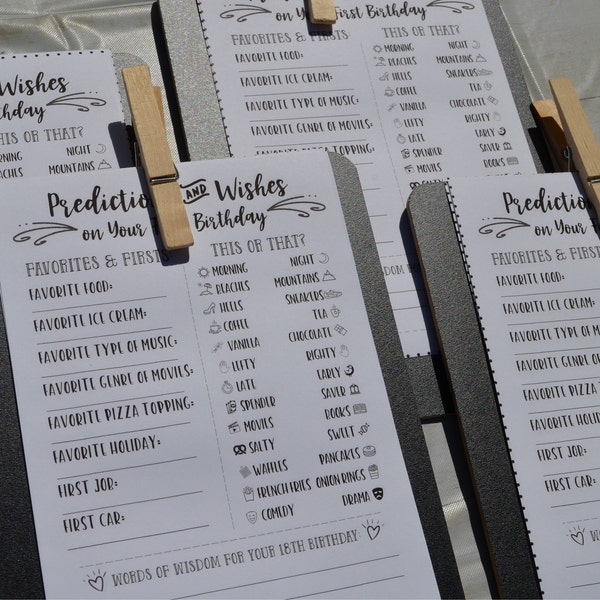 Wishes
Birthday
THIS OR THAT?
MORNING NIGHT
BEACHES MOUNTAINS
on Your First Birthday
FAVORITES & FIRSTS
FAVORITE FOOD:
FAVORITE ICE CREAM:
FAVORITE TYPE OF MUSIC:
FAVORITE GENRE OF MOVIES:
FAVORITE PIZZA TOPPING:
THIS OR THAT?
MORNING NIGHT
BEACHES MOUNTAINS
HEELS SNEAKERS
COFFEE TEA
VANILLA CHOCOLATE
LEFTY RIGHTY
LATE EARLY
SPENDER SAVER
MOVIES BOOKS
SALTY
WORDS OF WISDOM
Predictions AND Wishes
on Your Birthday
FAVORITES & FIRSTS
FAVORITE FOOD:
FAVORITE ICE CREAM:
FAVORITE TYPE OF MUSIC:
FAVORITE GENRE OF MOVIES:
FAVORITE PIZZA TOPPING:
FAVORITE HOLIDAY:
FIRST JOB:
FIRST CAR:
THIS OR THAT?
MORNING NIGHT
BEACHES MOUNTAINS
HEELS SNEAKERS
COFFEE TEA
VANILLA CHOCOLATE
LEFTY RIGHTY
LATE EARLY
SPENDER SAVER
MOVIES BOOKS
SALTY SWEET
WAFFLES PANCAKES
FRENCH FRIES ONION RINGS
COMEDY DRAMA
WORDS OF WISDOM FOR YOUR 18TH BIRTHDAY:
on Your
FAVORITES & FIRSTS
FAVORITE FOOD:
FAVORITE ICE CREAM:
FAVORITE TYPE OF
FAVORITE GENRE OF
FAVORITE PIZZA
FAVORITE HOLIDAY:
FIRST JOB:
FIRST CAR:
WORDS OF WISDOM